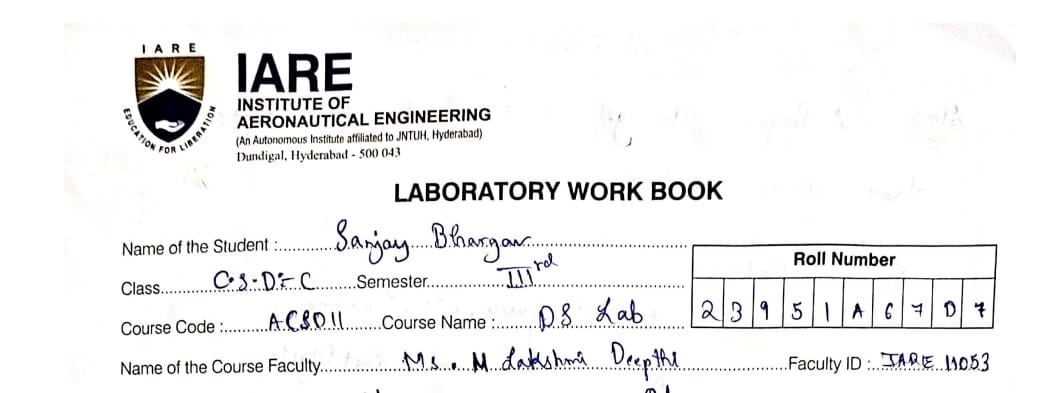 IARE
EDUCATION FOR LIBERATION
IARE
INSTITUTE OF
AERONAUTICAL ENGINEERING
(An Autonomous Institute affiliated to JNTUH, Hyderabad)
Dundigal, Hyderabad - 500 043
LABORATORY WORK BOOK
Name of the Student : Sanjay Bhargav
Class CS-DEC Semester IIIrd
Roll Number
Course Code : ACSD11 Course Name : DS Lab
23951A67D7
Name of the Course Faculty Ms. M Lakshmi Deepthi Faculty ID : IARE 11053